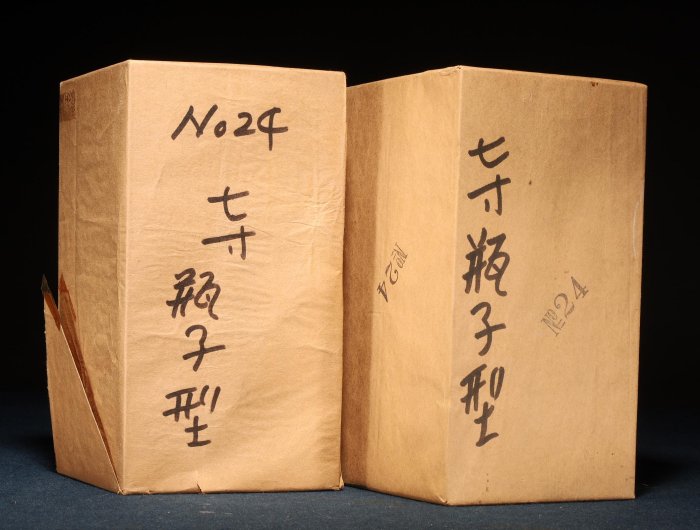 No24
七寸瓶子型
七寸瓶子型
№24
№24